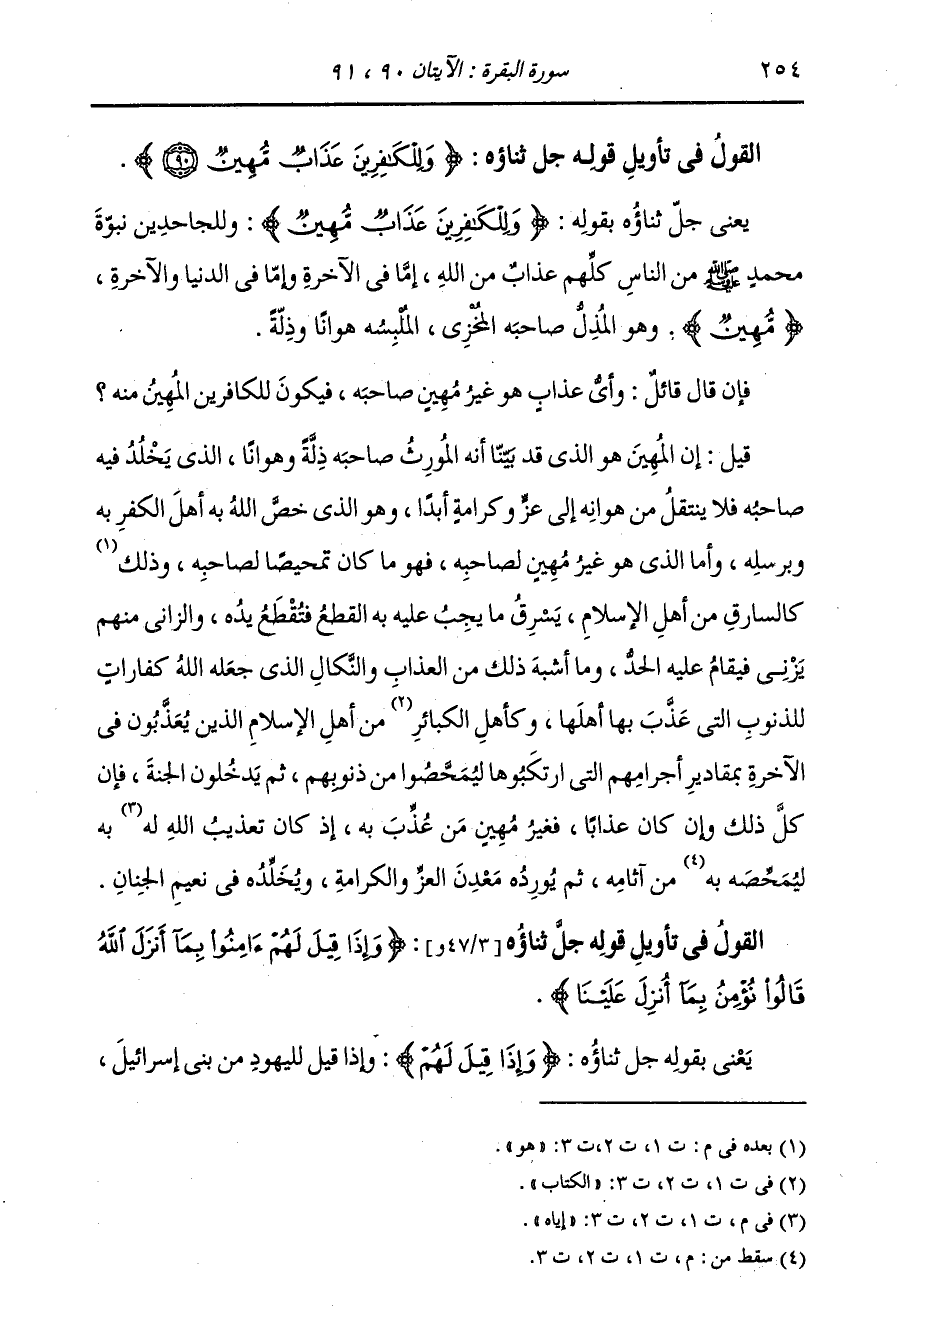 ٢٥٤ سورة البقرة : الآيتان ٩٠ ، ٩١
القولُ فى تأويلِ قولِه جل ثناؤه : ﴿ وَلِلْكَٰفِرِينَ عَذَابٌ مُّهِينٌ ٩٠ ﴾ .
يعنى جلّ ثناؤُه بقولِه : ﴿ وَلِلْكَٰفِرِينَ عَذَابٌ مُّهِينٌ ﴾ : وللجاحدِين نبوّةَ
محمدٍ ﷺ من الناسِ كلِّهم عذابٌ من اللهِ ، إمَّا فى الآخرةِ وإمَّا فى الدنيا والآخرةِ ،
﴿ مُّهِينٌ ﴾ . وهو المُذِلُّ صاحبَه المُخْزِى ، المُلْبِسُه هوانًا وذِلَّةً .
فإن قال قائلٌ : وأىُّ عذابٍ هو غيرُ مُهِينٍ صاحبَه ، فيكونَ للكافرين المُهِينُ منه ؟
قيل : إن المُهِينَ هو الذى قد بيَّنّا أنه المُورِثُ صاحبَه ذِلَّةً وهوانًا ، الذى يَخْلُدُ فيه
صاحبُه فلا ينتقلُ من هوانِه إلى عزٍّ وكرامةٍ أبدًا ، وهو الذى خصَّ اللهُ به أهلَ الكفرِ به
وبرسلِه ، وأما الذى هو غيرُ مُهِينٍ لصاحبِه ، فهو ما كان تمحيصًا لصاحبِه ، وذلك(١)
كالسارقِ من أهلِ الإسلامِ ، يَسْرِقُ ما يجِبُ عليه به القطعُ فتُقْطَعُ يدُه ، والزانى منهم
يَزْنِى فيقامُ عليه الحدُّ ، وما أشبهَ ذلك من العذابِ والنَّكالِ الذى جعَله اللهُ كفاراتٍ
للذنوبِ التى عَذَّبَ بها أهلَها ، وكأهلِ الكبائرِ(٢) من أهلِ الإسلامِ الذين يُعَذَّبُون فى
الآخرةِ بمقاديرِ أجرامِهم التى ارتكَبُوها ليُمَحَّصُوا من ذنوبِهم ، ثم يَدخُلون الجنةَ ، فإن
كلَّ ذلك وإن كان عذابًا ، فغيرُ مُهِينٍ مَن عُذِّبَ به ، إذ كان تعذيبُ اللهِ له(٣) به
ليُمَحِّصَه به(٤) من آثامِه ، ثم يُورِدُه مَعْدِنَ العزِّ والكرامةِ ، ويُخَلِّدُه فى نعيمِ الجِنانِ .
القولُ فى تأويلِ قولِه جلَّ ثناؤُه [٤٧/٣و] : ﴿ وَإِذَا قِيلَ لَهُمْ ءَامِنُواْ بِمَآ أَنزَلَ ٱللَّهُ
قَالُواْ نُؤْمِنُ بِمَآ أُنزِلَ عَلَيْنَا ﴾ .
يَعْنى بقولِه جل ثناؤُه : ﴿ وَإِذَا قِيلَ لَهُمْ ﴾ : وإذا قيل لليهودِ من بنى إسرائيلَ ،
(١) بعده فى م : ت ١، ت ٢،ت ٣: «هو» .
(٢) فى ت ١، ت ٢، ت ٣: «الكتاب» .
(٣) فى م، ت ١، ت ٢، ت ٣: «إياه» .
(٤) سقط من : م، ت ١، ت ٢، ت ٣.